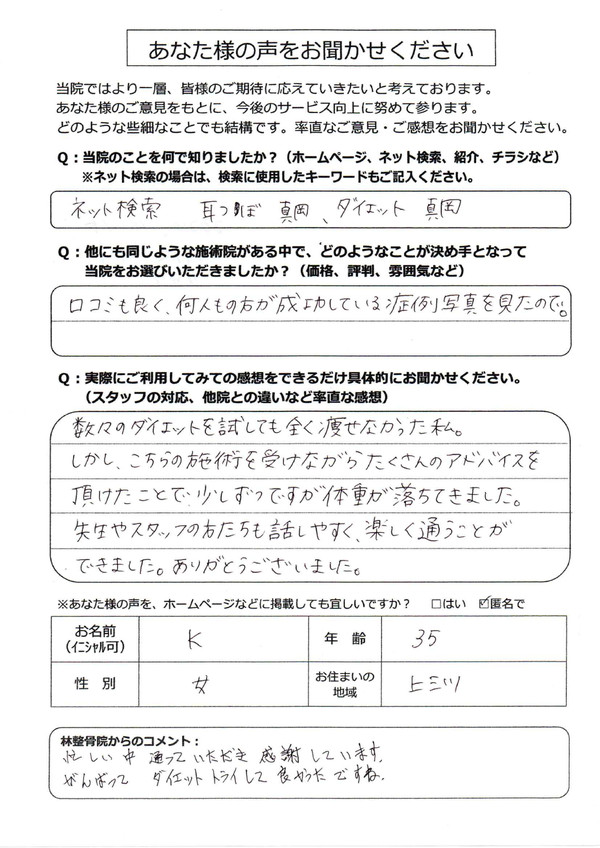 あなた様の声をお聞かせください
当院ではより一層、皆様のご期待に応えていきたいと考えております。
あなた様のご意見をもとに、今後のサービス向上に努めて参ります。
どのような些細なことでも結構です。率直なご意見・ご感想をお聞かせください。
Q：当院のことを何で知りましたか？（ホームページ、ネット検索、紹介、チラシなど）
※ネット検索の場合は、検索に使用したキーワードもご記入ください。
ネット検索 耳つぼ 真岡、ダイエット 真岡
Q：他にも同じような施術院がある中で、どのようなことが決め手となって
当院をお選びいただきましたか？（価格、評判、雰囲気など）
口コミも良く、何人もの方が成功している症例写真を見たので。
Q：実際にご利用してみての感想をできるだけ具体的にお聞かせください。
（スタッフの対応、他院との違いなど率直な感想）
数々のダイエットを試しても全く痩せなかった私。
しかし、こちらの施術を受けながらたくさんのアドバイスを
頂けたことで少しずつですが体重が落ちてきました。
先生やスタッフの方たちも話しやすく、楽しく通うことが
できました。ありがとうございました。
※あなた様の声を、ホームページなどに掲載しても宜しいですか？ □はい ☑匿名で
お名前 K 年 齢 35
（イニシャル可）
性 別 女 お住まいの地域 ヒミツ
林整骨院からのコメント：
忙しい中 通っていただき 感謝しています。
がんばって ダイエットトライして 良かったですね。